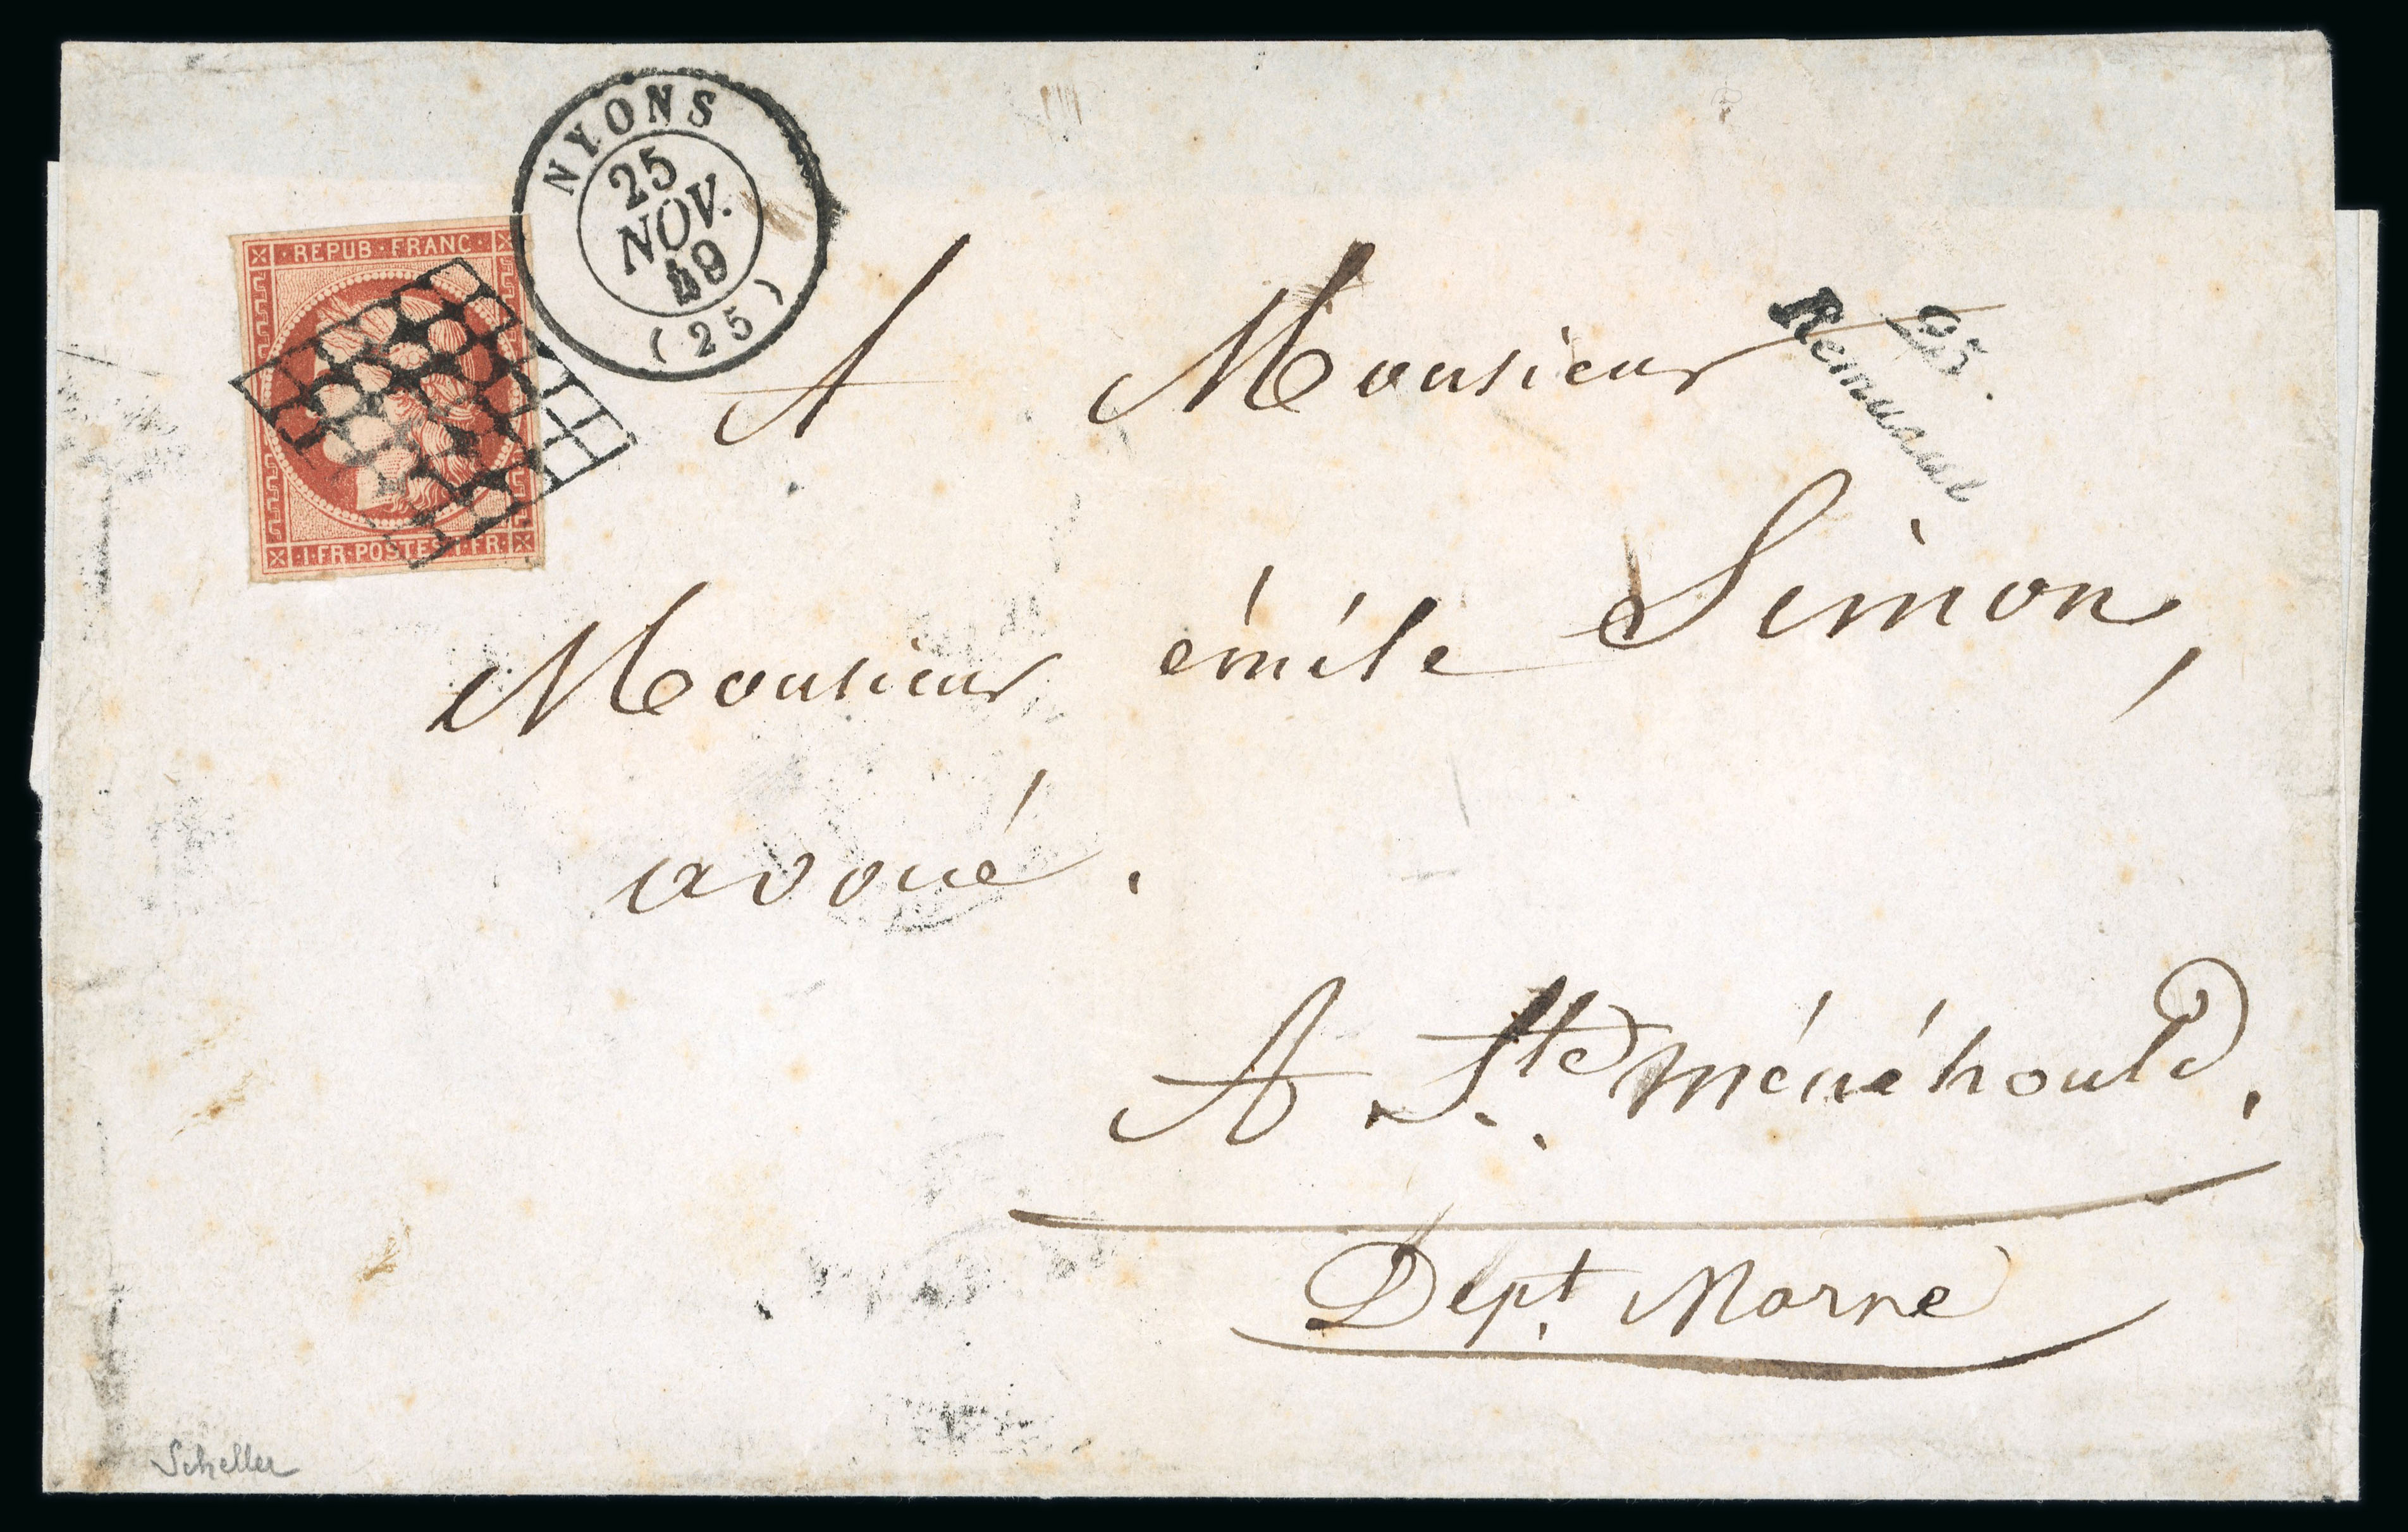 NYONS
25
NOV.
49
(25)
REPUB·FRANC·
·1·FR·POSTES·1·FR·
25
Remusat
A Monsieur
Monsieur émile Simon,
avoué.
A Ste ménéhould.
Dept. Marne
Scheller